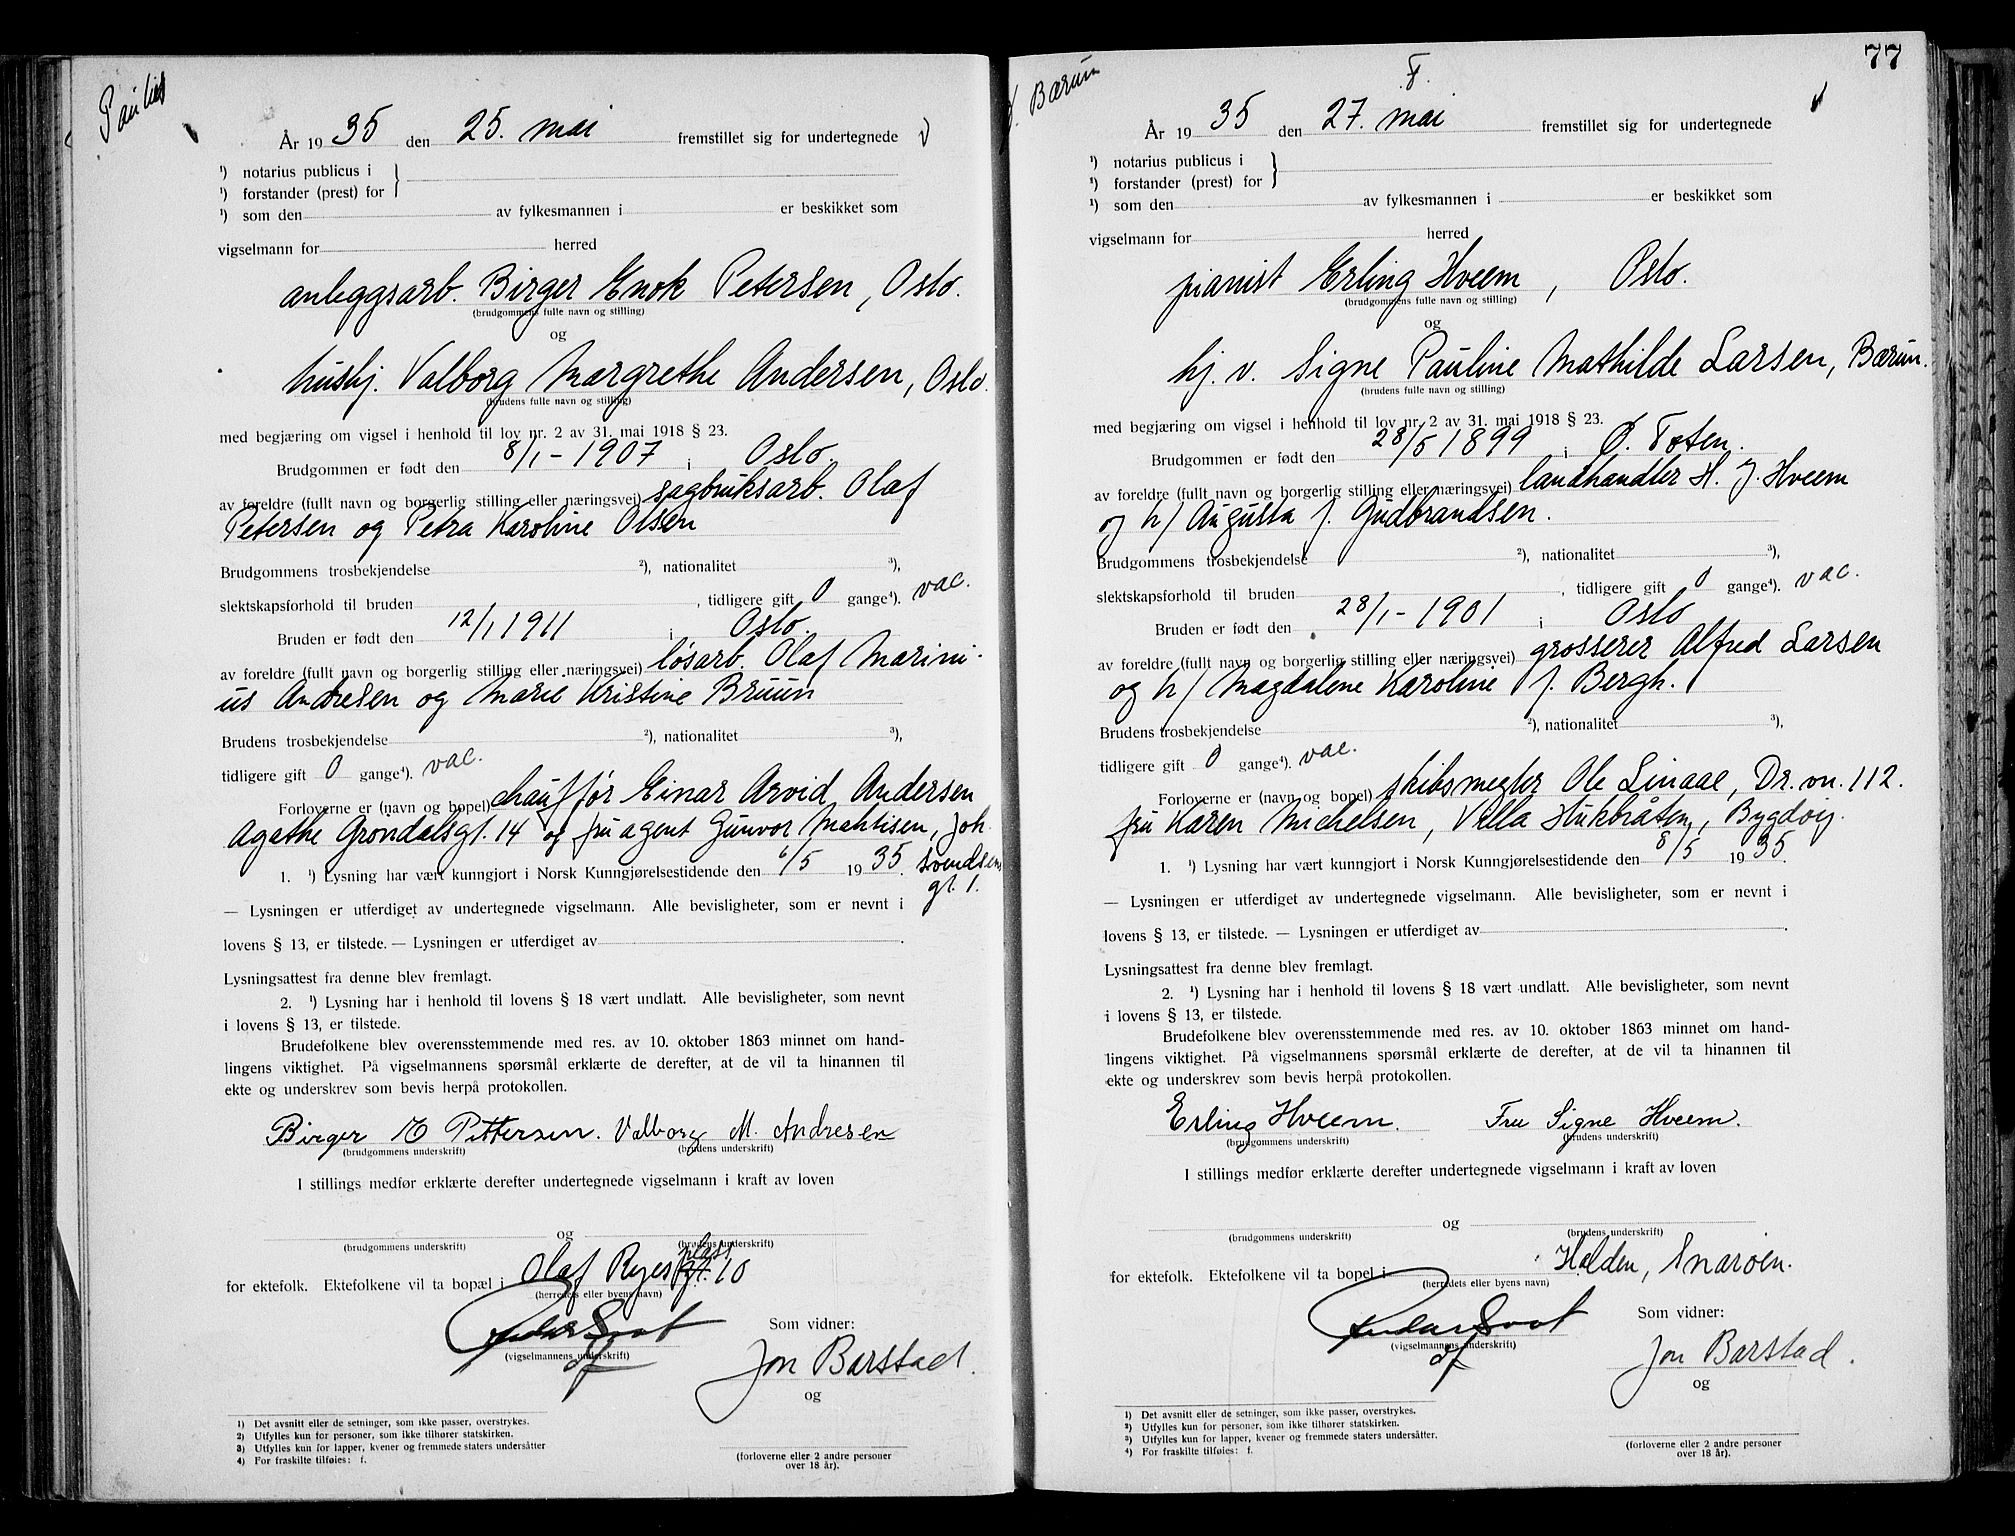 Paulus
År 1935 den 25. mai fremstillet sig for undertegnede
¹) notarius publicus i
¹) forstander (prest) for
¹) som den av fylkesmannen i er beskikket som
vigselmann for herred
anleggsarb. Birger Enok Petersen, Oslo.
(brudgommens fulle navn og stilling)
og
hushj. Valborg Margrethe Andersen, Oslo.
(brudens fulle navn og stilling)
med begjæring om vigsel i henhold til lov nr. 2 av 31. mai 1918 § 23.
Brudgommen er født den 8/1-1907 i Oslo.
av foreldre (fullt navn og borgerlig stilling eller næringsvei) sagbruksarb. Olaf
Petersen og Petra Karoline Olsen
Brudgommens trosbekjendelse ²), nationalitet ³),
slektskapsforhold til bruden , tidligere gift 0 gange⁴). vac.
Bruden er født den 12/1 1911 i Oslo.
av foreldre (fullt navn og borgerlig stilling eller næringsvei) løsarb. Olaf Marini-
us Andresen og Marie Kristine Bruun
Brudens trosbekjendelse ²), nationalitet ³),
tidligere gift 0 gange⁴). vac.
Forloverne er (navn og bopel) chauffør Einar Arvid Andersen
Agathe Grøndalsgt. 14 og fru agent Gunvor Mahtisen, Joh.
1. ¹) Lysning har vært kunngjort i Norsk Kunngjørelsestidende den 6/5 1935. Svendsens
gt. 1.
— Lysningen er utferdiget av undertegnede vigselmann. Alle bevisligheter, som er nevnt i
lovens § 13, er tilstede. — Lysningen er utferdiget av .
Lysningsattest fra denne blev fremlagt.
2. ¹) Lysning har i henhold til lovens § 18 vært undlatt. Alle bevisligheter, som nevnt
i lovens § 13, er tilstede.
Brudefolkene blev overensstemmende med res. av 10. oktober 1863 minnet om hand-
lingens viktighet. På vigselmannens spørsmål erklærte de derefter, at de vil ta hinannen til
ekte og underskrev som bevis herpå protokollen.
Birger E Pettersen. Valborg M. Andresen
(brudgommens underskrift) (brudens underskrift)
I stillings medfør erklærte derefter undertegnede vigselmann i kraft av loven
og
(brudgommens underskrift) (brudens underskrift)
plass
for ektefolk. Ektefolkene vil ta bopæl i Olaf Ryes gt. 10
(herredets eller byens navn)
Som vidner:
(vigselmannens underskrift)
Jon Barstad
og
1) Det avsnitt eller de setninger, som ikke passer, overstrykes.
2) Utfylles kun for personer, som ikke tilhører statskirken.
3) Utfylles kun for lapper, kvener og fremmede staters undersåtter
4) For fraskilte tilføies: f.
(forloverne eller 2 andre personer
over 18 år).
77
Bærum
F.
År 1935 den 27. mai fremstillet sig for undertegnede
¹) notarius publicus i
¹) forstander (prest) for
¹) som den av fylkesmannen i er beskikket som
vigselmann for herred
pianist Erling Hveem, Oslo.
(brudgommens fulle navn og stilling)
og
hj. v. Signe Pauline Mathilde Larsen, Bærum.
(brudens fulle navn og stilling)
med begjæring om vigsel i henhold til lov nr. 2 av 31. mai 1918 § 23.
Brudgommen er født den 28/5 1899 i Ø. Toten.
av foreldre (fullt navn og borgerlig stilling eller næringsvei) landhandler H. J. Hveem
og h/ Augusta f. Gudbrandsen.
Brudgommens trosbekjendelse ²), nationalitet ³),
slektskapsforhold til bruden , tidligere gift 0 gange⁴). vac.
Bruden er født den 28/1-1901 i Oslo
av foreldre (fullt navn og borgerlig stilling eller næringsvei) grosserer Alfred Larsen
og h/ Magdalene Karoline f. Bergh.
Brudens trosbekjendelse ²), nationalitet ³),
tidligere gift 0 gange⁴). vac.
Forloverne er (navn og bopel) skibsmegler Ole Linaae, Dr. vn. 112.
fru Karen Michelsen, Villa Hukbråten, Bygdøy.
1. ¹) Lysning har vært kunngjort i Norsk Kunngjørelsestidende den 8/5 1935.
— Lysningen er utferdiget av undertegnede vigselmann. Alle bevisligheter, som er nevnt i
lovens § 13, er tilstede. — Lysningen er utferdiget av .
Lysningsattest fra denne blev fremlagt.
2. ¹) Lysning har i henhold til lovens § 18 vært undlatt. Alle bevisligheter, som nevnt
i lovens § 13, er tilstede.
Brudefolkene blev overensstemmende med res. av 10. oktober 1863 minnet om hand-
lingens viktighet. På vigselmannens spørsmål erklærte de derefter, at de vil ta hinannen til
ekte og underskrev som bevis herpå protokollen.
Erling Hveem. Fru Signe Hveem.
(brudgommens underskrift) (brudens underskrift)
I stillings medfør erklærte derefter undertegnede vigselmann i kraft av loven
og
(brudgommens underskrift) (brudens underskrift)
for ektefolk. Ektefolkene vil ta bopel i Halden, Snarøen.
(herredets eller byens navn)
Som vidner:
(vigselmannens underskrift)
Jon Barstad.
og
1) Det avsnitt eller de setninger, som ikke passer, overstrykes.
2) Utfylles kun for personer, som ikke tilhører statskirken.
3) Utfylles kun for lapper, kvener og fremmede staters undersåtter.
4) For fraskilte tilføies: f.
(forloverne eller 2 andre personer
over 18 år).